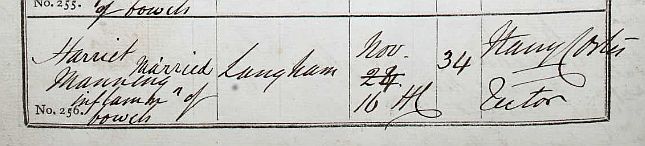 No. 255.
of bowels
Harriet Married
Manning
inflamm.n of
No. 256.
bowels
Langham
Nov.
24
16 H
34
Henry
Rector